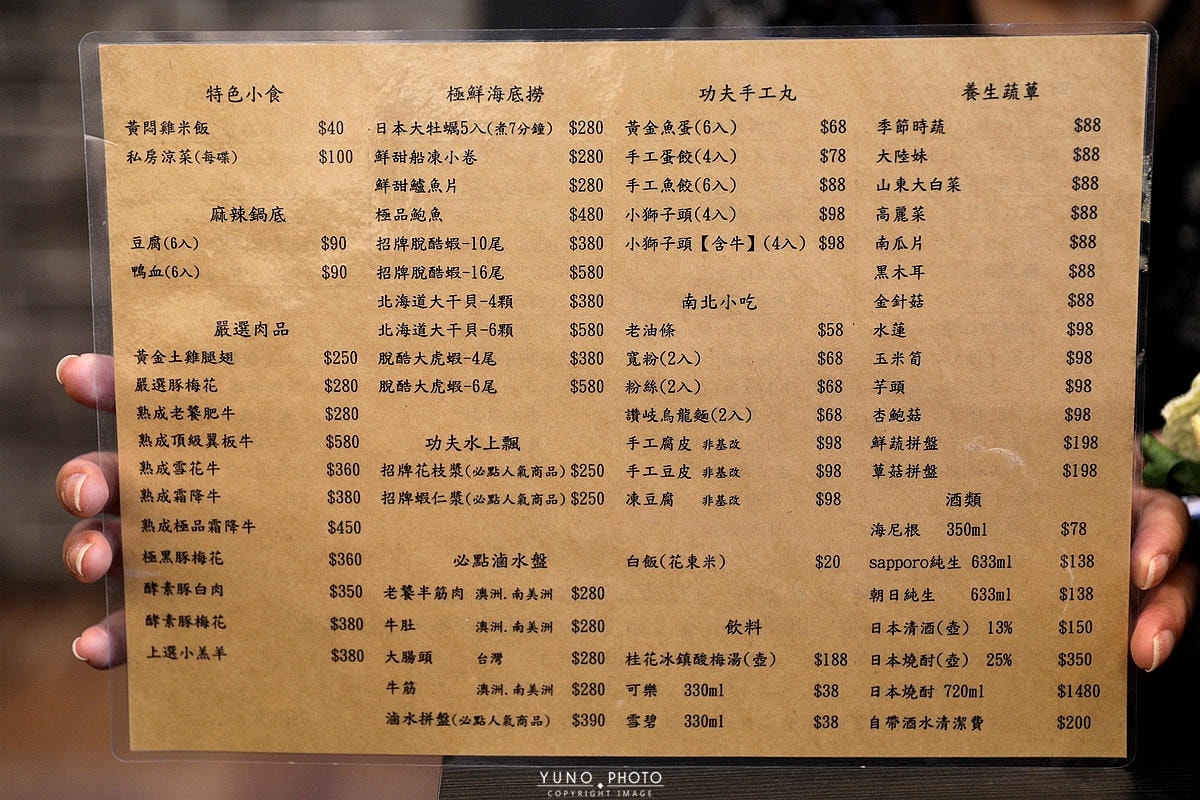 特色小食
黃悶雞米飯 $40
私房涼菜(每碟) $100
麻辣鍋底
豆腐(6入) $90
鴨血(6入) $90
嚴選肉品
黃金土雞腿翅 $250
嚴選豚梅花 $280
熟成老饕肥牛 $280
熟成頂級翼板牛 $580
熟成雪花牛 $360
熟成霜降牛 $380
熟成極品霜降牛 $450
極黑豚梅花 $360
酵素豚白肉 $350
酵素豚梅花 $380
上選小羔羊 $380
極鮮海底撈
日本大牡蠣5入(煮7分鐘) $280
鮮甜船凍小卷 $280
鮮甜鱸魚片 $280
極品鮑魚 $480
招牌脫酷蝦-10尾 $380
招牌脫酷蝦-16尾 $580
北海道大干貝-4顆 $380
北海道大干貝-6顆 $580
脫酷大虎蝦-4尾 $380
脫酷大虎蝦-6尾 $580
功夫水上飄
招牌花枝漿(必點人氣商品) $250
招牌蝦仁漿(必點人氣商品) $250
必點滷水盤
老饕半筋肉 澳洲.南美洲 $280
牛肚 澳洲.南美洲 $280
大腸頭 台灣 $280
牛筋 澳洲.南美洲 $280
滷水拼盤(必點人氣商品) $390
功夫手工丸
黃金魚蛋(6入) $68
手工蛋餃(4入) $78
手工魚餃(6入) $88
小獅子頭(4入) $98
小獅子頭【含牛】(4入) $98
南北小吃
老油條 $58
寬粉(2入) $68
粉絲(2入) $68
讚岐烏龍麵(2入) $68
手工腐皮 非基改 $98
手工豆皮 非基改 $98
凍豆腐 非基改 $98
白飯(花東米) $20
飲料
桂花冰鎮酸梅湯(壺) $188
可樂 330ml $38
雪碧 330ml $38
養生蔬蕈
季節時蔬 $88
大陸妹 $88
山東大白菜 $88
高麗菜 $88
南瓜片 $88
黑木耳 $88
金針菇 $88
水蓮 $98
玉米筍 $98
芋頭 $98
杏鮑菇 $98
鮮蔬拼盤 $198
蕈菇拼盤 $198
酒類
海尼根 350ml $78
sapporo純生 633ml $138
朝日純生 633ml $138
日本清酒(壺) 13% $150
日本燒酎(壺) 25% $350
日本燒酎 720ml $1480
自帶酒水清潔費 $200
YUNO PHOTO
COPYRIGHT IMAGE